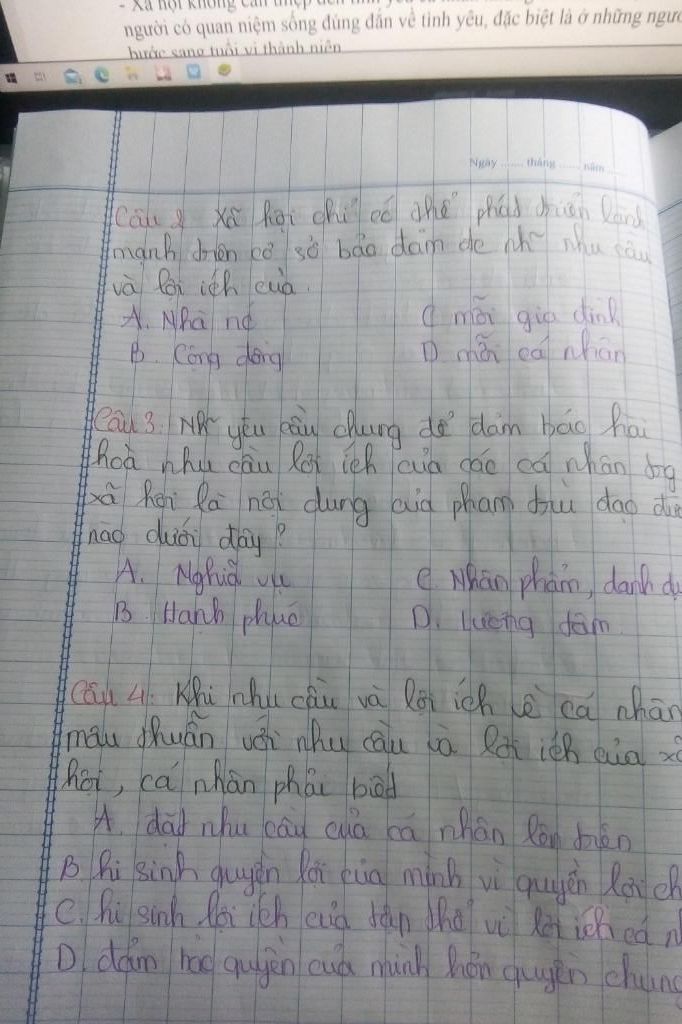 - Xã hội không can thiệp đến
người có quan niệm sống đúng đắn về tình yêu, đặc biệt là ở những ngườ
bước sang tuổi vị thành niên
Ngày ...... tháng ...... năm ......
Câu 2 Xã hội chỉ có thể phát triển lành
mạnh trên cơ sở bảo đảm đc nh~ nhu cầu
và lợi ích của.
A. Nhà nc
C mỗi gia đình
B. Cộng đồng
D mỗi cá nhân
Câu 3: Nh~ yêu cầu chung để đảm bảo hài
hoà nhu cầu lợi ích của các cá nhân trg
xã hội là nội dung của phạm trù đạo đức
nào dưới đây?
A. Nghĩa vụ
C. Nhân phẩm, danh dự
B. Hạnh phúc
D. Lương tâm.
Câu 4: Khi nhu cầu và lợi ích về cá nhân
mâu thuẫn với nhu cầu và lợi ích của xã
hội, cá nhân phải biết
A. đặt nhu cầu của cá nhân lên trên
B hi sinh quyền lợi của mình vì quyền lợi ch
C. hi sinh lợi ích của tập thể vì lợi ích cá n
D. đảm bảo quyền của mình hơn quyền chung